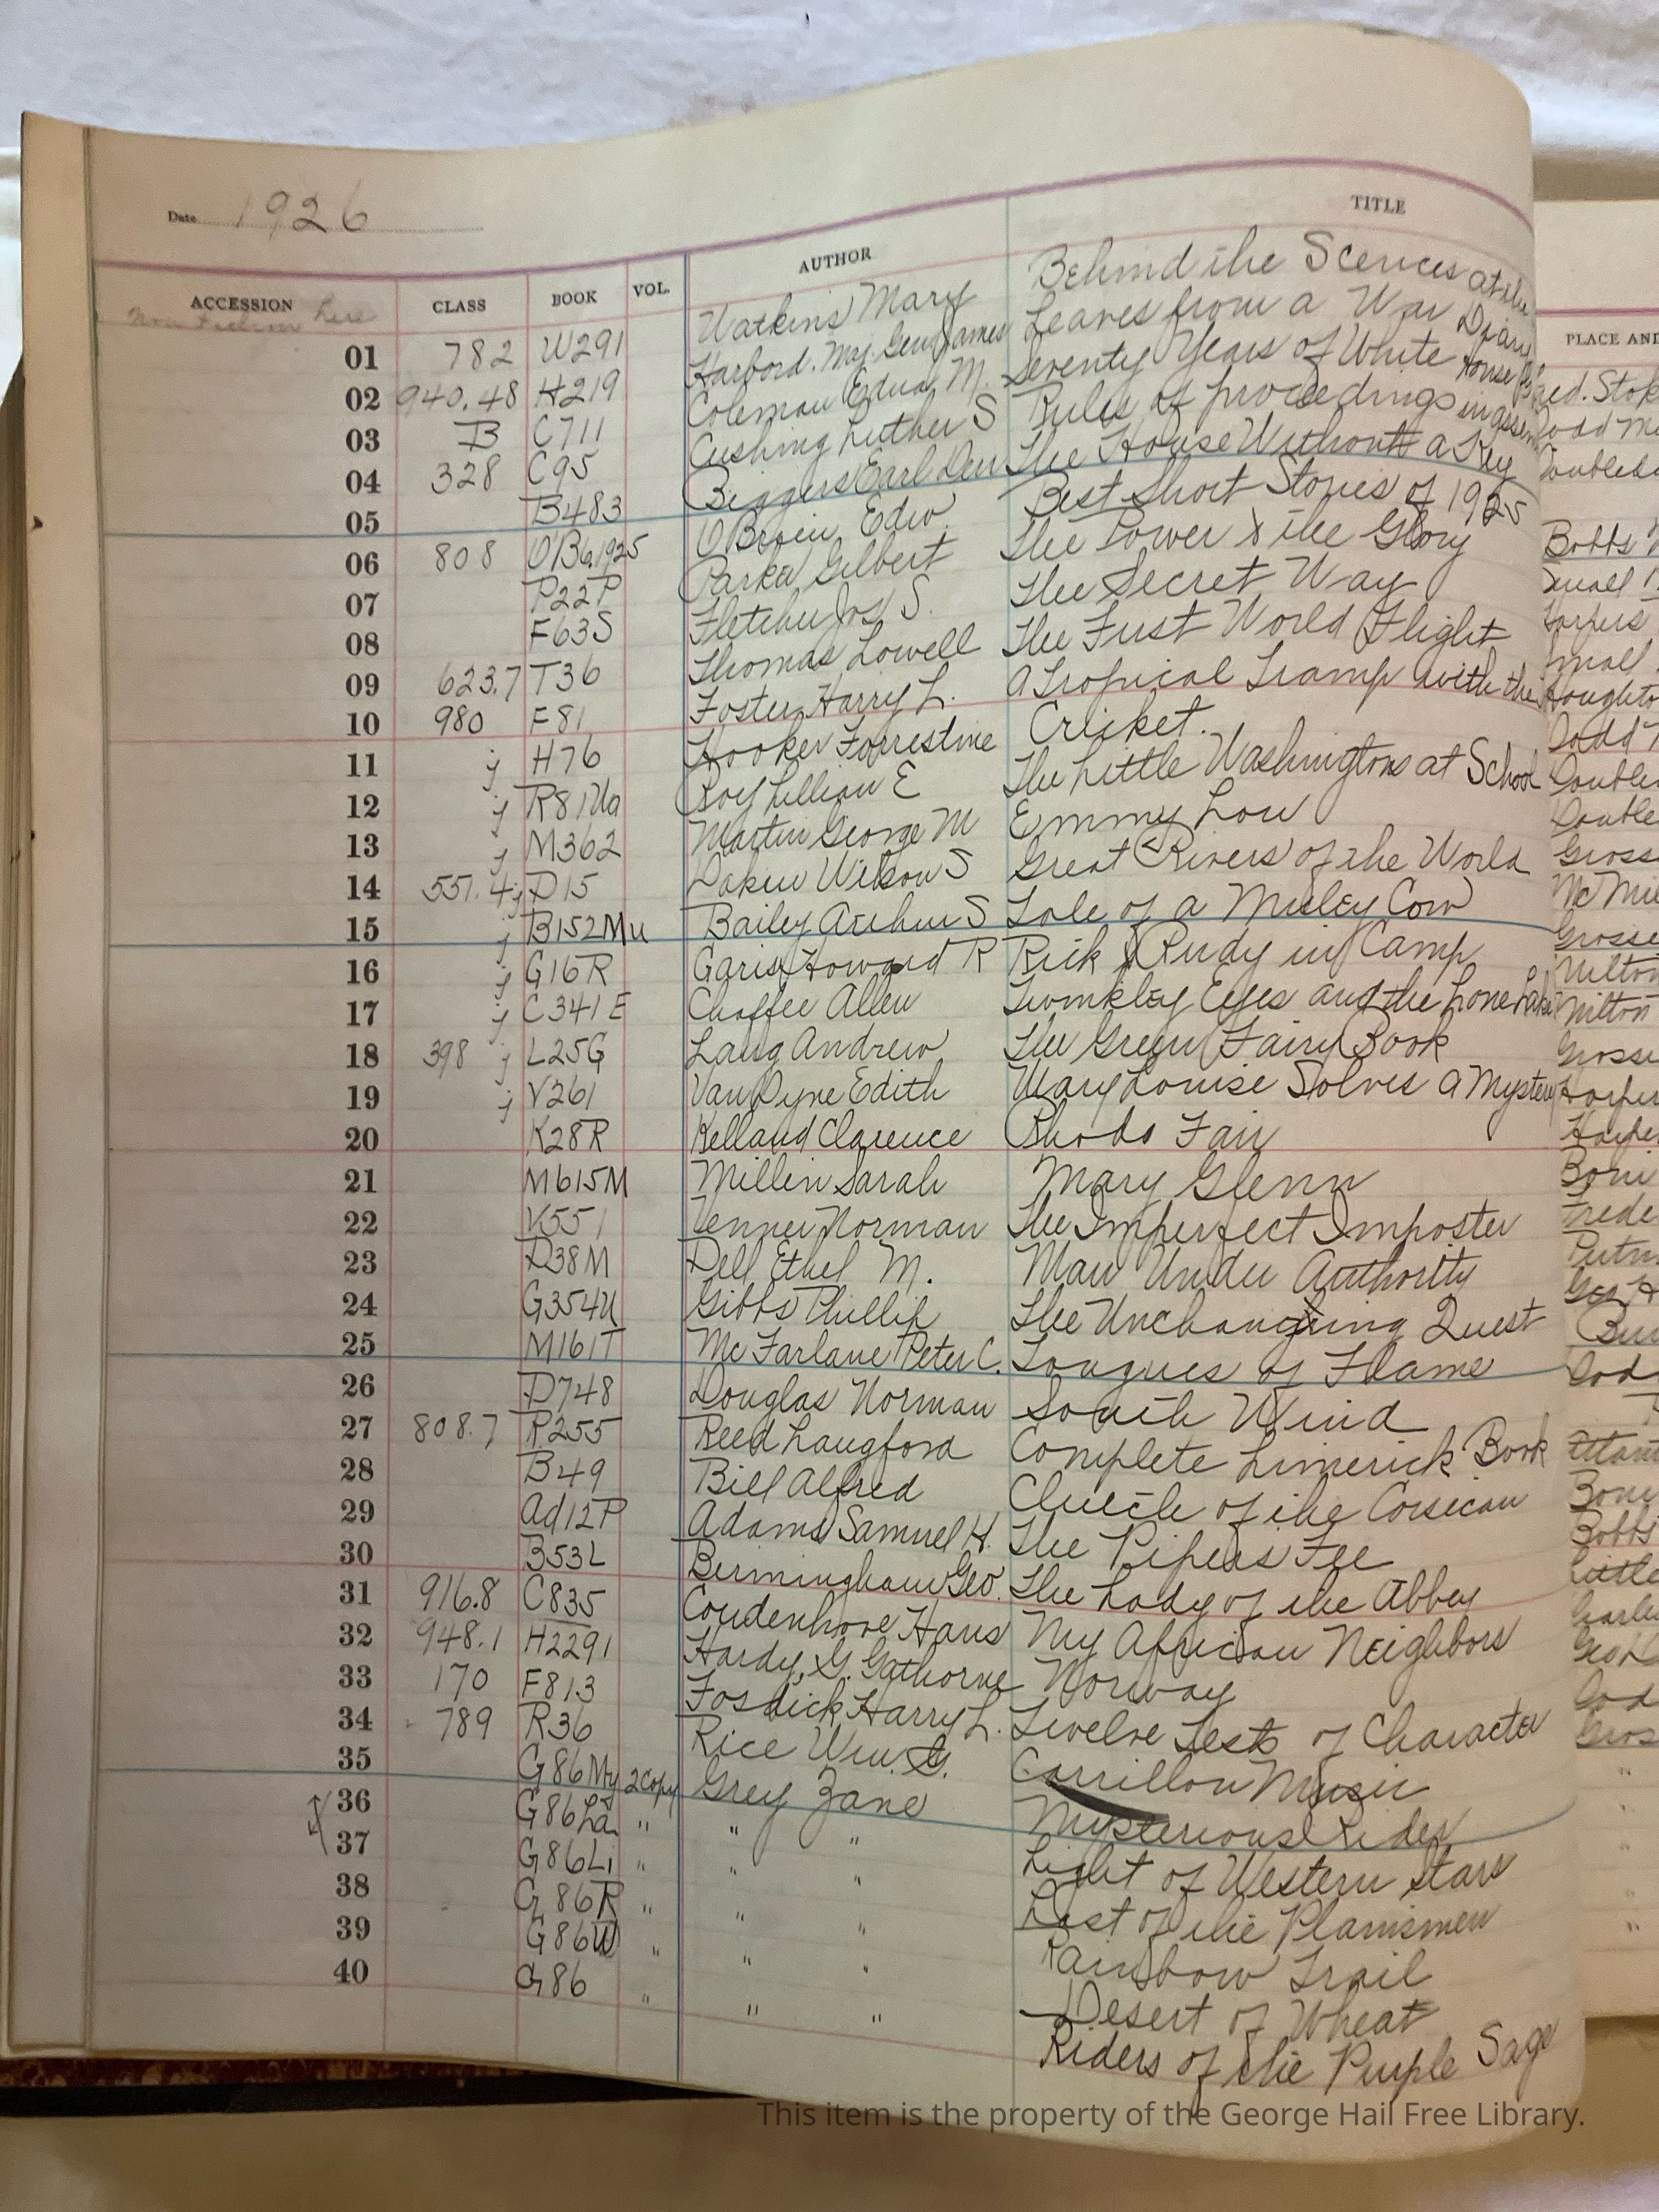 Date 1926
ACCESSION CLASS BOOK VOL. AUTHOR TITLE
here
01 782 W291 Watkins Mary Behind the Scences at the
02 940.48 H219 Harbord. Maj. Gen James Leaves from a War Diary
03 B C711 Coleman Edna M. Seventy Years of White House
04 328 C95 Cushing Luther S Rules of proceedings in
05 B483 Biggers Earl Derr The House Without a Key
06 808 O'B6.1925 O'Brien Edw. Best Short Stories of 1925
07 P22P Parker Gilbert The Power & the Glory
08 F63S Fletcher Jos S. The Secret Way
09 623.7 T36 Thomas Lowell The First World Flight
10 980 F81 Foster Harry L. A Tropical Tramp with the
11 j H76 Hooker Forrestine Cricket.
12 j R81Wa Roy Lillian E The Little Washingtons at School
13 j M362 Martin George M Emmy Lou
14 551.4 j D15 Dakin Wilson S Great Rivers of the World
15 j B152Mu Bailey Arthur S Tale of a Muley Cow
16 j G16R Garis Howard R Rick & Rudy in Camp
17 j C341E Chaffee Allen Twinkley Eyes and the Lone Lake
18 398 j L25G Lang Andrew The Green Fairy Book
19 j V261 Van Dyne Edith Mary Louise Solves a Mystery
20 K28R Kelland Clarence Rhoda Fair
21 M615M Millin Sarah Mary Glenn
22 V551 Venner Norman The Imperfect Imposter
23 D38M Dell Ethel M. Man Under Authority
24 G354U Gibbs Phillip The Unchanging Quest
25 M161T McFarlane Peter C. Tongues of Flame
26 D748 Douglas Norman South Wind
27 808.7 R255 Reed Langford Complete Limerick Book
28 B49 Bill Alfred Clutch of the Corsican
29 Ad12P Adams Samuel H. The Pipers Fee
30 B53L Birmingham Geo. The Lady of the Abbey
31 916.8 C835 Coudenhove Hans My African Neighbors
32 948.1 H2291 Hardy, G. Gathorne Norway
33 170 F813 Fosdick Harry L. Twelve Tests of Character
34 789 R36 Rice Wm. G. Carrillon Music
35 G86My 2copy Grey Zane Mysterious Rider
36 G86La " " " Light of Western Stars
37 G86Li " " " Last of the Plainsmen
38 G86R " " " Rainbow Trail
39 G86W " " " Desert of Wheat
40 G86 " " " Riders of the Purple Sage
PLACE AND
Fred. Stok
Dodd M
Doubled
Bobbs
Small
Harpers
Small
Houghto
Dodd
Double
Double
Gross
McMil
Grosse
Milton
Milton
Grosse
Harper
Harper
Boni
Frede
Putn
Geo H
Dod
Atlant
Boni
Bobbs
Little
Geo
Dod
Gros
This item is the property of the George Hail Free Library.